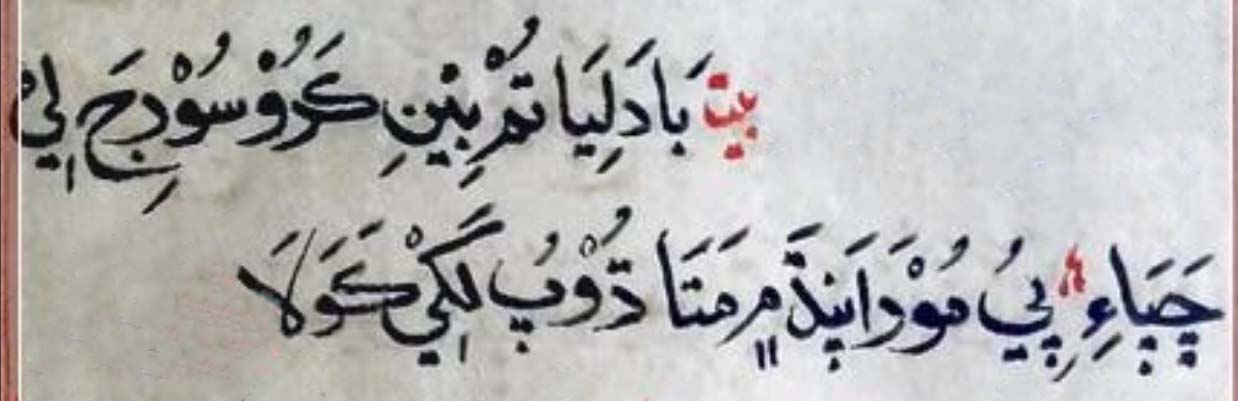 بيت بَادَلِيَا تُمْ بِيْنِ كَرُوْ سُوْرِجَ لٖيْ
چَپَاءِ پِيُ مُوْرَا پَنْدَّ مٖ مَتَا دُّوْپُ لَكٖيْ كَوَلَا